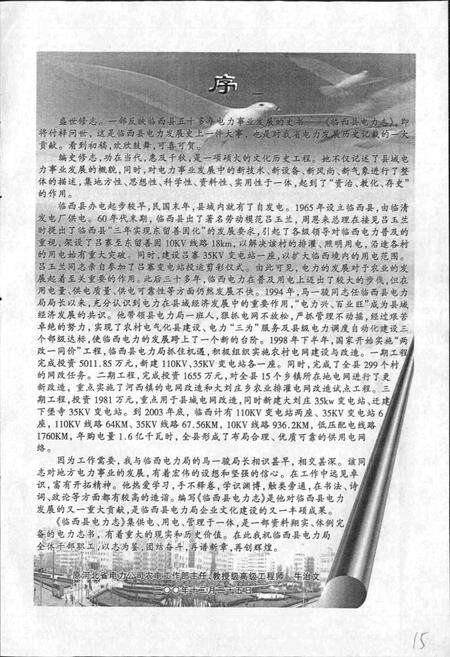 序 一
盛世修志。一部反映临西县五十多年电力事业发展的史书——《临西县电力志》,即
将付梓问世,这是临西县电力发展史上一件大事,也是对我省电力发展历史记载的一大
贡献。看到初稿,欣欣鼓舞,可喜可贺。
编史修志,功在当代,惠及千秋,是一项硕大的文化历史工程。她不仅记述了县域电
力事业发展的概貌,同时,对电力发展中的新技术、新设备、新风尚、新气象进行了整
体的描述,集地方性、思想性、科学性、资料性、实用性于一体,起到了“资治、教化、存史”
的作用。
临西县办电起步较早,民国末年,县域内就有了自发电。1965年设立临西县,由临清
发电厂供电。60年代末期,临西县出了著名劳动模范吕玉兰,周恩来总理在接见吕玉兰
时提出了临西县“三年实现东留善固化”的发展要求,引起了各级领导对临西电力普及的
重视,架设了吕寨至东留善固10KV线路18km,以解决该村的排灌、照明用电,沿途各村
的用电始有重大突破。同时,建设吕寨35KV变电站一座,以扩大临西境内的用电范围。
吕玉兰同志亲自参加了吕寨变电站投运剪彩仪式。由此可见,电力的发展对于农业的发
展起着至关重要的作用。此后三十多年,临西电力在普及用电上迈出了较大的步伐,但在
用电量、供电质量、供电可靠性等方面仍然发展不快。1994年,马一骏同志任临西县电力
局局长以来,充分认识到电力在县域经济发展中的重要作用,“电力兴、百业旺”成为县域
经济发展的共识。他带领县电力局一班人,狠抓电网不放松,严抓管理不动摇,经过艰苦
卓绝的努力,实现了农村电气化县建设、电力“三为”服务及县级电力调度自动化建设三
个部级达标,使临西电力的发展跨上了一个新的台阶。1998年下半年,国家开始实施“两
改一同价”工程,临西县电力局抓住机遇,积极组织实施农村电网建设与改造。一期工程
完成投资5011.85万元,新建110KV、35KV变电站各一座。同时,完成了全县299个村
的网改任务。二期工程,完成投资1655万元,对全县15个乡镇所在地电网进行了更
新改造,重点实施了河西镇的电网改造和大刘庄乡农业排灌电网改造试点工程。三
期工程,投资1981万元,重点用于县城电网改造,同时新建大刘庄35kw变电站、迁建
下堡寺35KV变电站。到2003年底,临西计有110KV变电站两座、35KV变电站6
座,110KV线路64KM、35KV线路67.56KM,10KV线路936.2KM,低压配电线路
1760KM,年购电量1.6亿千瓦时,全县形成了布局合理、优质可靠的供用电网
络。
因为工作需要,我与临西电力局的马一骏局长相识甚早,相交甚深。该同
志对地方电力事业的发展,有着宏伟的设想和坚强的信心。在工作中远见卓
识,富有开拓精神。他热爱学习,手不释卷,学识渊博,触类旁通,在书法、诗
词、政论等方面都有较高的造诣。编写《临西县电力志》是他对临西县电力
发展的又一重大贡献,是临西县电力局企业文化建设的又一丰硕成果。
《临西县电力志》集供电、用电、管理于一体,是一部资料翔实、体例完
备的电力志书,有着重大的现实和历史价值。在此我祝临西县电力局
全体干部职工,以志为鉴,团结奋斗,再谱新章,再创辉煌。
原河北省电力公司农电工作部主任、教授级高级工程师 牛治文
15